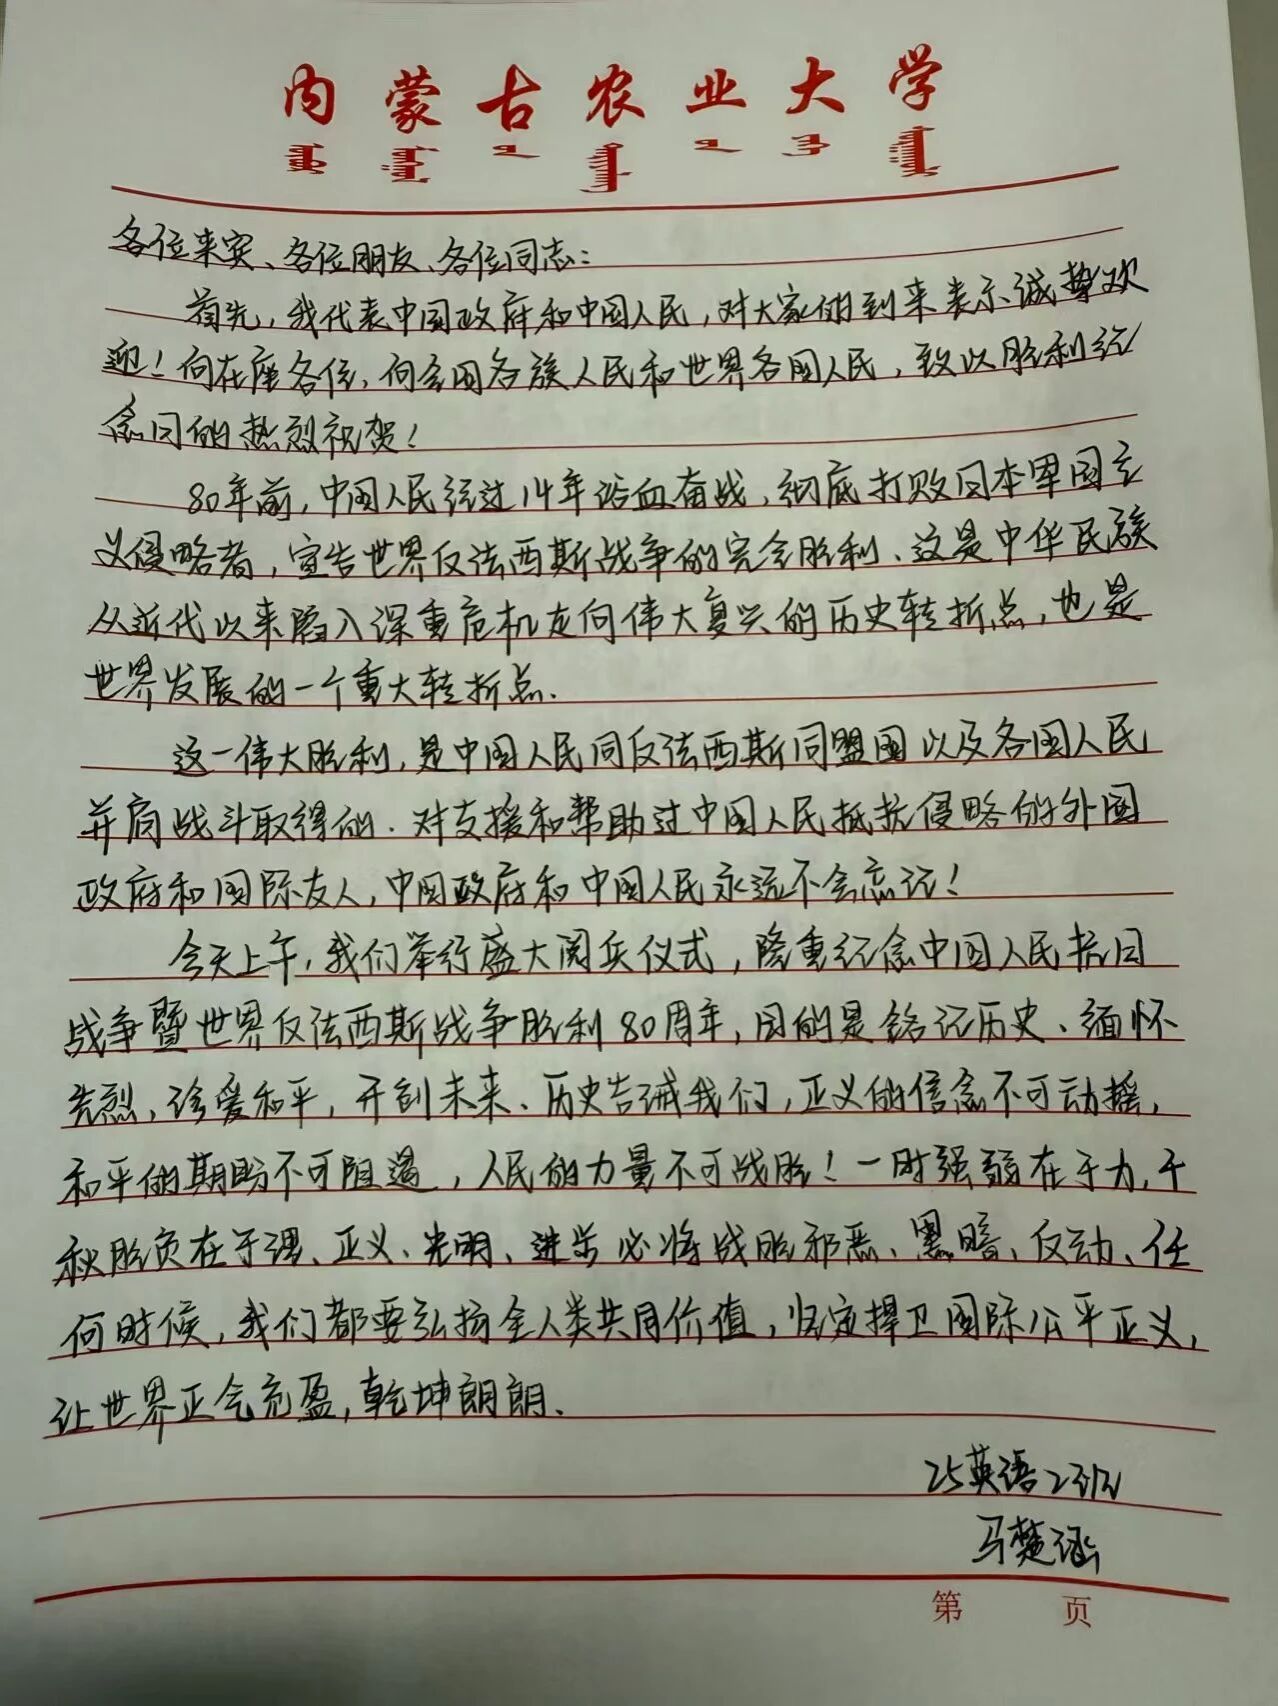 内蒙古农业大学
各位来宾、各位朋友、各位同志：
首先，我代表中国政府和中国人民，对大家的到来表示诚挚欢
迎！向在座各位，向全国各族人民和世界各国人民，致以胜利纪
念日的热烈祝贺！
80年前，中国人民经过14年浴血奋战，彻底打败日本军国主
义侵略者，宣告世界反法西斯战争的完全胜利、这是中华民族
从近代以来陷入深重危机走向伟大复兴的历史转折点，也是
世界发展的一个重大转折点.
这一伟大胜利，是中国人民同反法西斯同盟国以及各国人民
并肩战斗取得的.对支援和帮助过中国人民抵抗侵略的外国
政府和国际友人，中国政府和中国人民永远不会忘记！
今天上午，我们举行盛大阅兵仪式，隆重纪念中国人民抗日
战争暨世界反法西斯战争胜利80周年，目的是铭记历史、缅怀
先烈，珍爱和平，开创未来、历史告诫我们，正义的信念不可动摇，
和平的期盼不可阻遏，人民的力量不可战胜！一时强弱在于力，千
秋胜负在于理、正义、光明、进步必将战胜邪恶、黑暗、反动、任
何时候，我们都要弘扬全人类共同价值，坚定捍卫国际公平正义，
让世界正气充盈，乾坤朗朗.
25英语2班
马楚涵
第 页